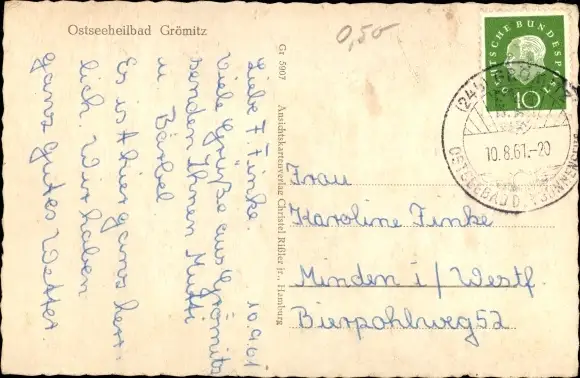 Ostseeheilbad Grömitz
0,50
Liebe F. Finke. 10.9.61
Viele Grüße aus Grömitz
senden Ihnen Mutti
u Bärbel
Es ist hier ganz herr-
lich. Wir haben
ganz gutes Wetter
Gr 5907 Ansichtskartenverlag Christel Rißler jr., Hamburg
DEUTSCHE BUNDESPOST
10
(24b) GRÖMITZ
10.8.61.-20
OSTSEEBAD D.
Frau
Karoline Finke
Minden i/Westf.
Bierpohlweg 52